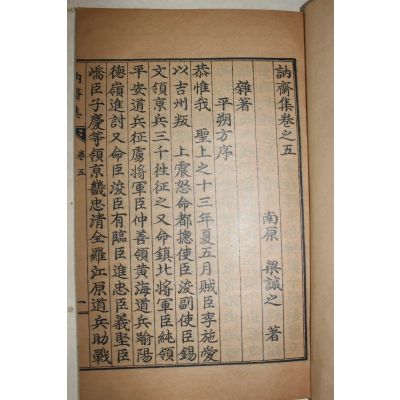 訥齋集卷之五
南原 梁誠之 著
雜著
平朔方序
恭惟我 聖上之十三年夏五月賊臣李施愛
以吉州叛 上震怒命都摠使臣浚副使臣錫
文領京兵三千徃征之又命鎮北將軍臣純領
平安道兵征虜將軍臣仲善領黃海道兵踰陽
德嶺進討又命臣浚臣有臨臣進忠臣義堅臣
憍臣子慶等領京畿忠清全羅江原道兵助戰
訥齋集 卷五 一